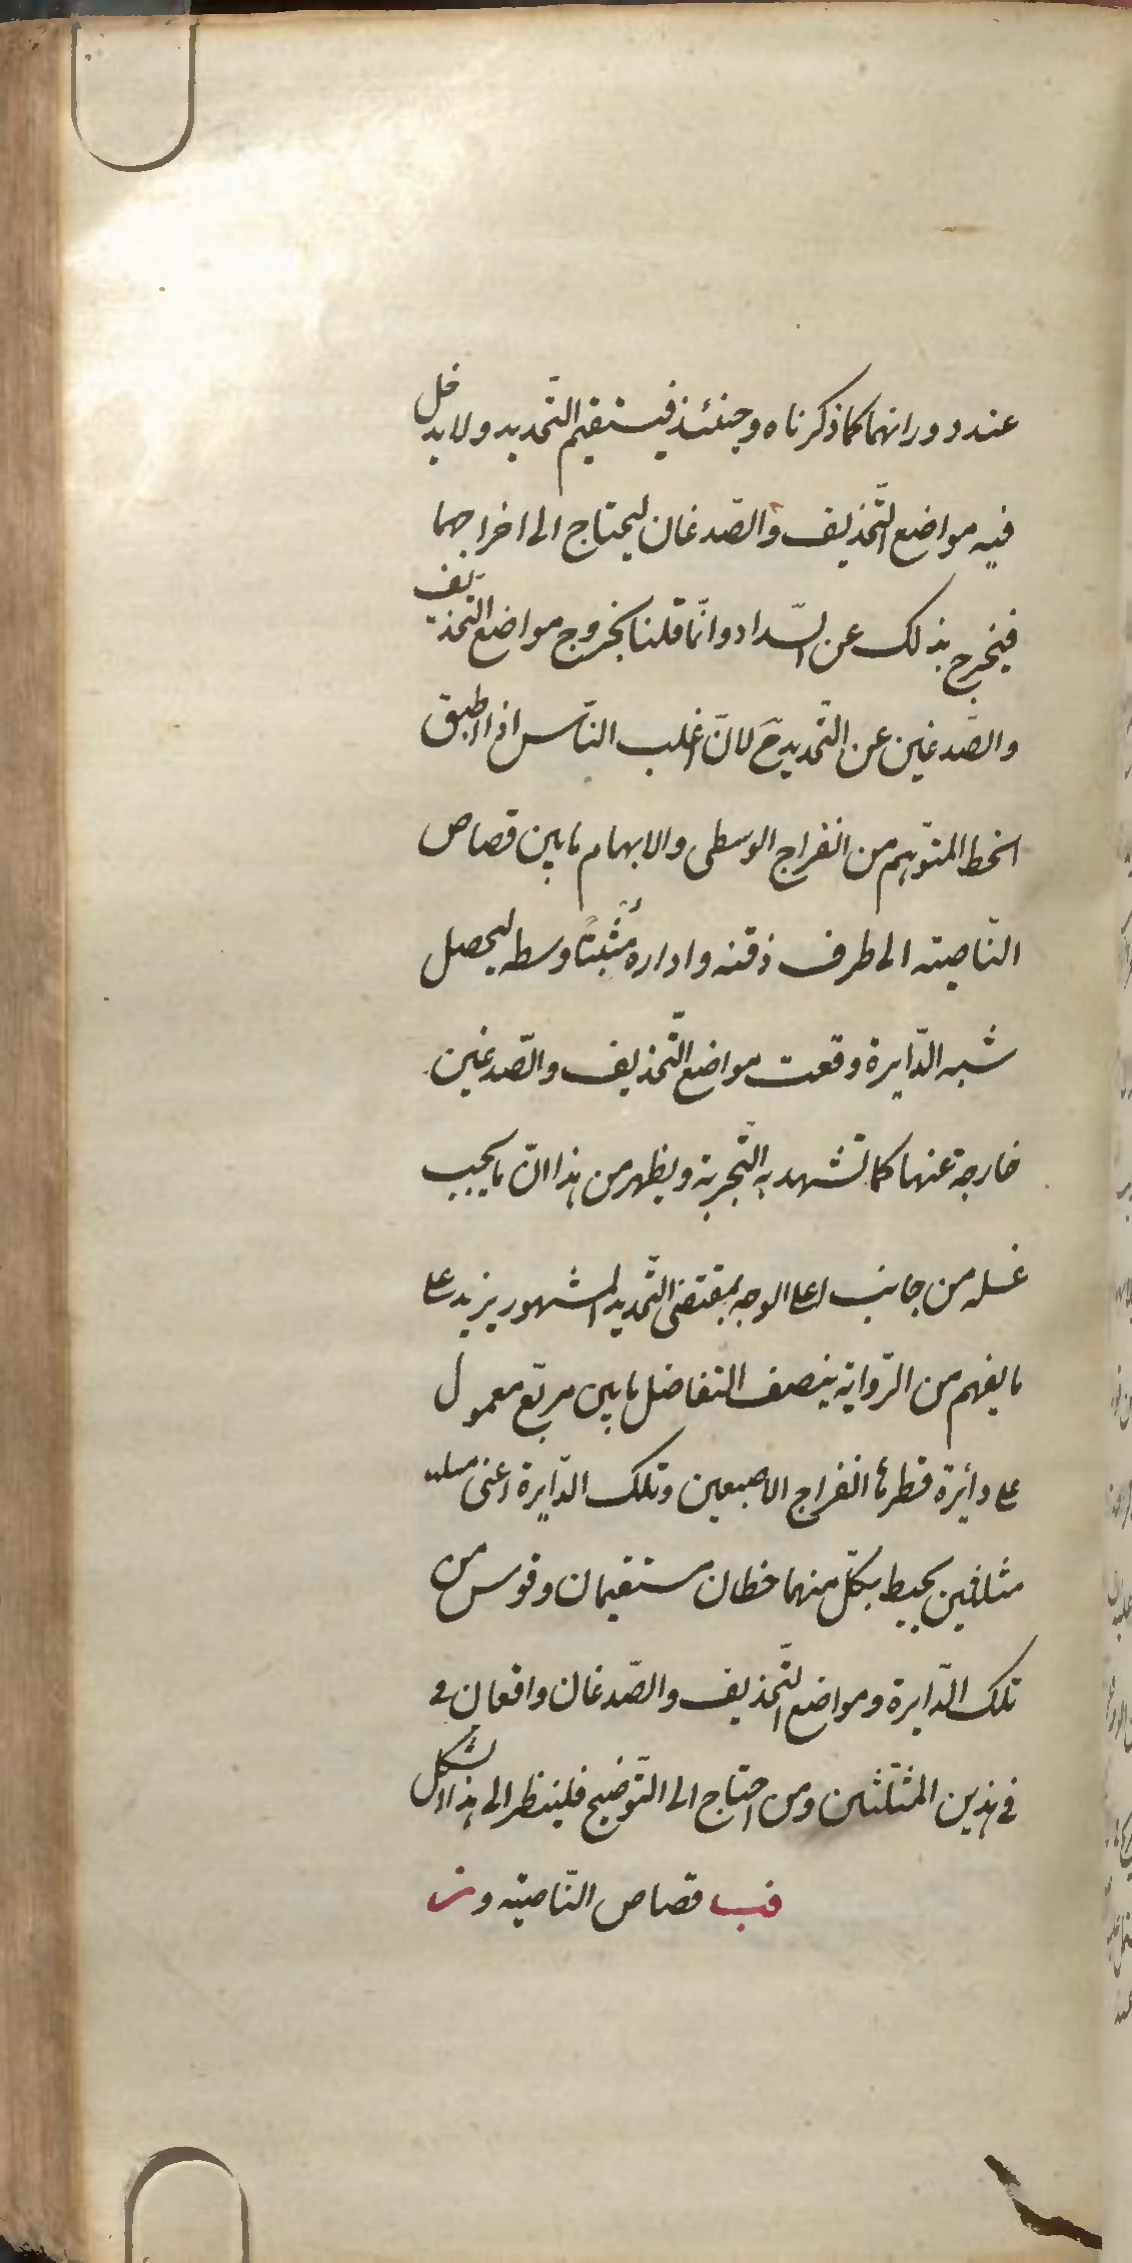 عند دورانهما كما ذكرناه وحينئذ فيستقيم التّحديد ولا يدخل
فيه مواضع التّحذيف والصّدغان ليحتاج الى اخراجهما
فيخرج بذلك عن السّداد وانّما قلنا بخروج مواضع التحذيف
والصّدغين عن التّحديد ح لانّ اغلب النّاس اذا اطبق
الخط المتوّهم من انفراج الوسطى والابهام ما بين قصاص
النّاصية الى طرف ذقنه واداره مُثْبِتًا وسطه ليحصل
شبه الدّايرة وقعت مواضع التّحذيف والصّدغين
خارجة عنها كما تشهد به التّجربة ويظهر من هذا انّ ما يجب
غسله من جانب اعلى الوجه بمقتضى التّحديد المشهور يزيد على
ما يفهم من الرّواية بنصف التفاضل ما بين مربّع معمول
على دائرة قطرها انفراج الاصبعين وتلك الدّايرة اعنى
مثلثين يحيط بكلّ منهما خطان مستقيمان وقوس من
تلك الدّايرة ومواضع التّحذيف والصّدغان واقعان في
في هذين المثلّثين ومن احتاج الى التّوضيح فلينظر الى هذا الشكل
فب قصاص النّاصية و